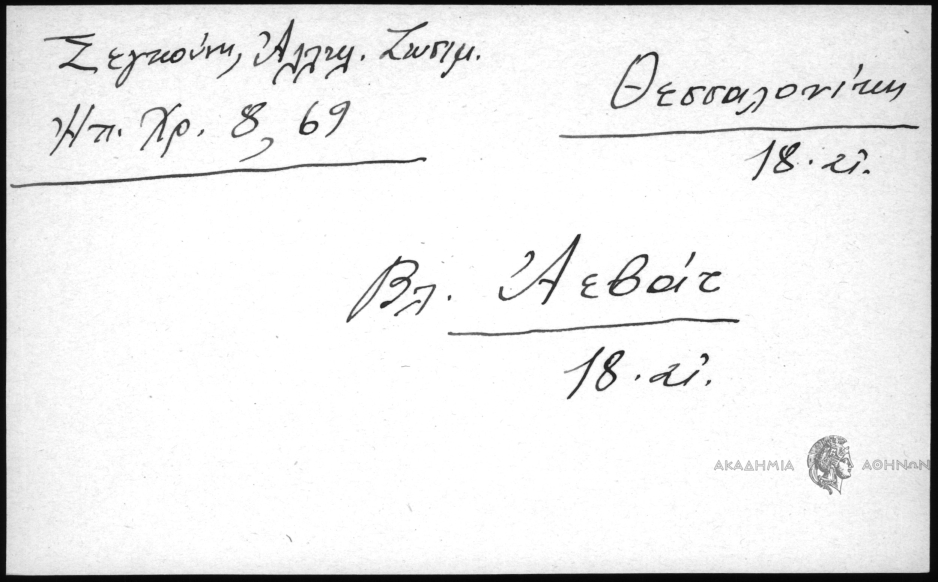 Σεγκούνη, Ἀλληλ. Ζωσιμ.
Ἠπ. Χρ. 8, 69
Θεσσαλονίκη
18. αἰ.
Βλ. Ἀεβάτ
18. αἰ.
ΑΚΑΔΗΜΙΑ ΑΘΗΝΩΝ